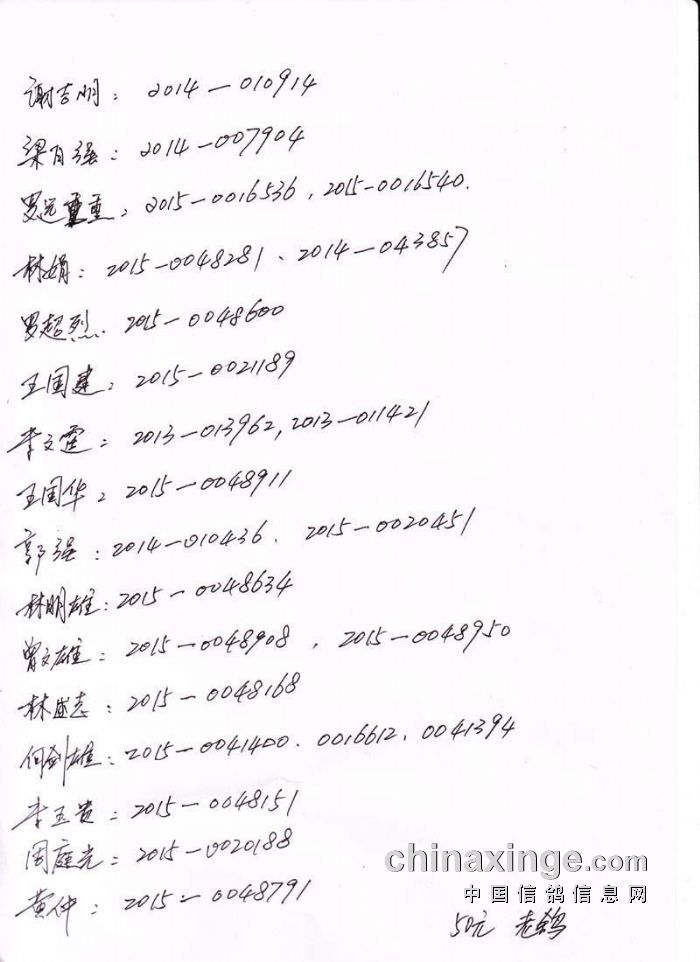 谢吉明：2014—010914
梁月强：2014—007904
罗远重：2015—0016536、2015—0016540.
林娟：2015—0048281、2014—043857
罗超烈：2015—0048600
王国建：2015—0021189
李文霆：2013—013962，2013—011421
王国华：2015—0048911
郭强：2014—010436、2015—0020451
林明雄：2015—0048634
曾文雄：2015—0048908、2015—0048950
林盛志：2015—0048168
何剑雄：2015—0041400、0016612、0041394
李玉贵：2015—0048151
周庭光：2015—0020188
黄仲：2015—0048791
50元 老鸽
chinaxinge.com
中国信鸽信息网